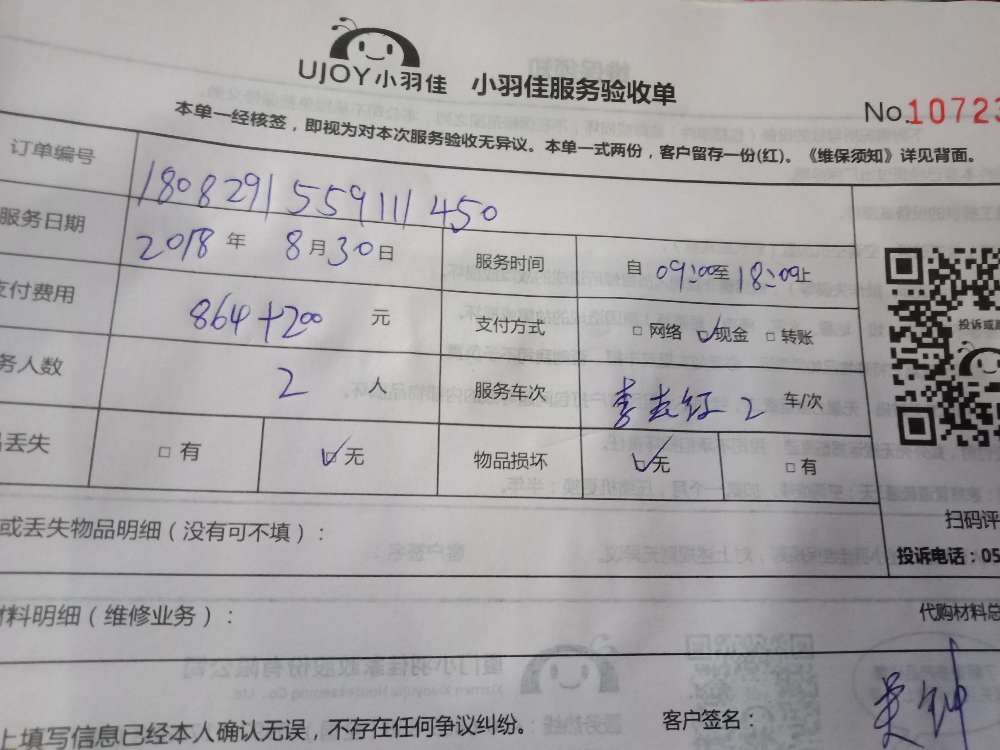 UJOY小羽佳 小羽佳服务验收单
No.10723
本单一经核签，即视为对本次服务验收无异议。本单一式两份，客户留存一份(红)。《维保须知》详见背面。
订单编号 180829155911450
服务日期 2018年 8月30日 服务时间 自 09:00至18:00止
支付费用 864+200 元 支付方式 □网络 ☑现金 □转账
务人数 2 人 服务车次 2 车/次
丢失 □有 ☑无 物品损坏 ☑无 □有
投诉或
或丢失物品明细（没有可不填）：
扫码评
投诉电话：05
材料明细（维修业务）：
代购材料总
上填写信息已经本人确认无误，不存在任何争议纠纷。 客户签名：